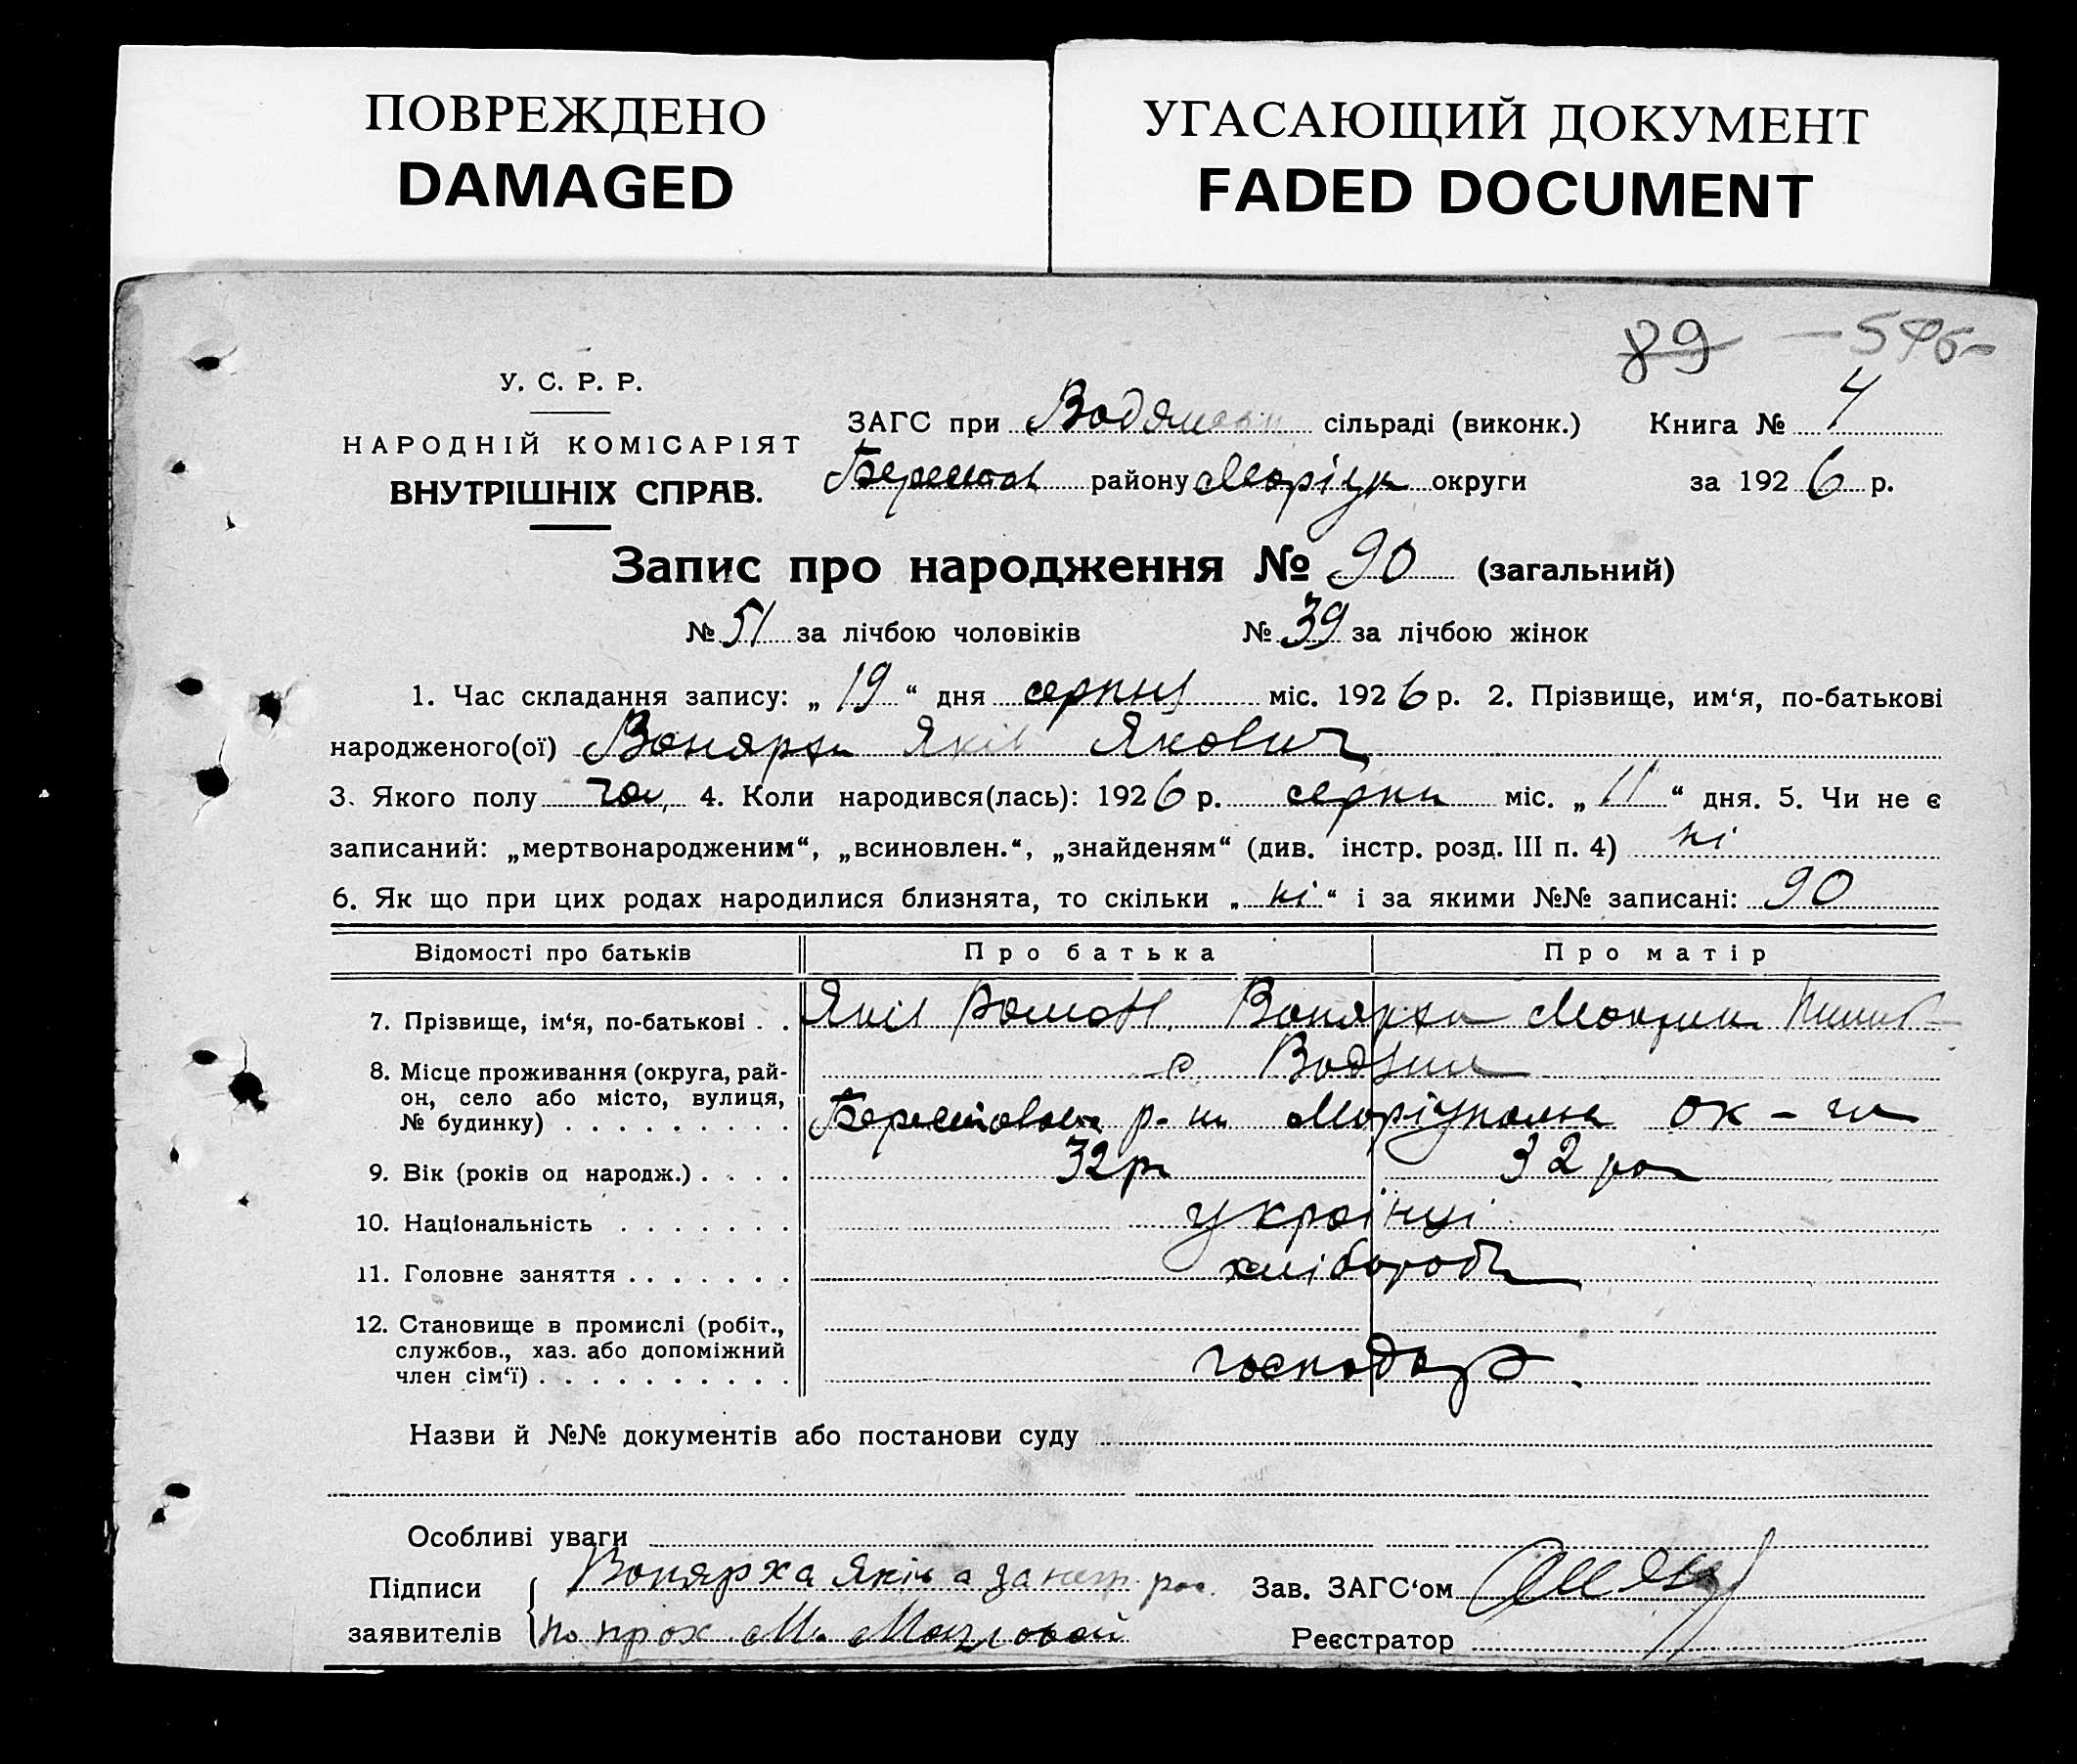 ПОВРЕЖДЕНО
DAMAGED
УГАСАЮЩИЙ ДОКУМЕНТ
FADED DOCUMENT
89
У. С. Р. Р.
НАРОДНІЙ КОМІСАРІЯТ
ВНУТРІШНІХ СПРАВ.
ЗАГС при сільраді (виконк.) Книга № 4
Берестов району Маріуп округи за 1926 р.
Запис про народження № 90 (загальний)
№ 51 за лічбою чоловіків № 39 за лічбою жінок
1. Час складання запису: „ 19 “ дня серпня міс. 1926 р. 2. Прізвище, им‘я, по-батькові
народженого(ої) Вонярха Яків Якович
3. Якого полу чол, 4. Коли народився(лась): 1926 р. серпн міс. „ 11 “ дня. 5. Чи не є
записаний: „мертвонародженим“, „всиновлен.“, „знайденям“ (див. інстр. розд. III п. 4) ні
6. Як що при цих родах народилися близнята, то скільки „ ні “ і за якими №№ записані: 90
Відомості про батьків Про батька Про матір
7. Прізвище, ім‘я, по-батькові . . Яків Роман. Вонярха
8. Місце проживання (округа, рай-
он, село або місто, вулиця,
№ будинку) . . . . . . . . . .
с. Водяни
р-ну ок-ги
9. Вік (років од народж.) . . . . 32 р 32 ро
10. Національність . . . . . . . українці
11. Головне заняття . . . . . . . хлібороби
12. Становище в промислі (робіт.,
службов., хаз. або допоміжний
член сім‘ї) . . . . . . . . . . .
господар
Назви й №№ документів або постанови суду
Особливі уваги
Підписи
заявителів
Вонярха Яків а за негр. рос.
по прох М.
Зав. ЗАГС‘ом
Реєстратор